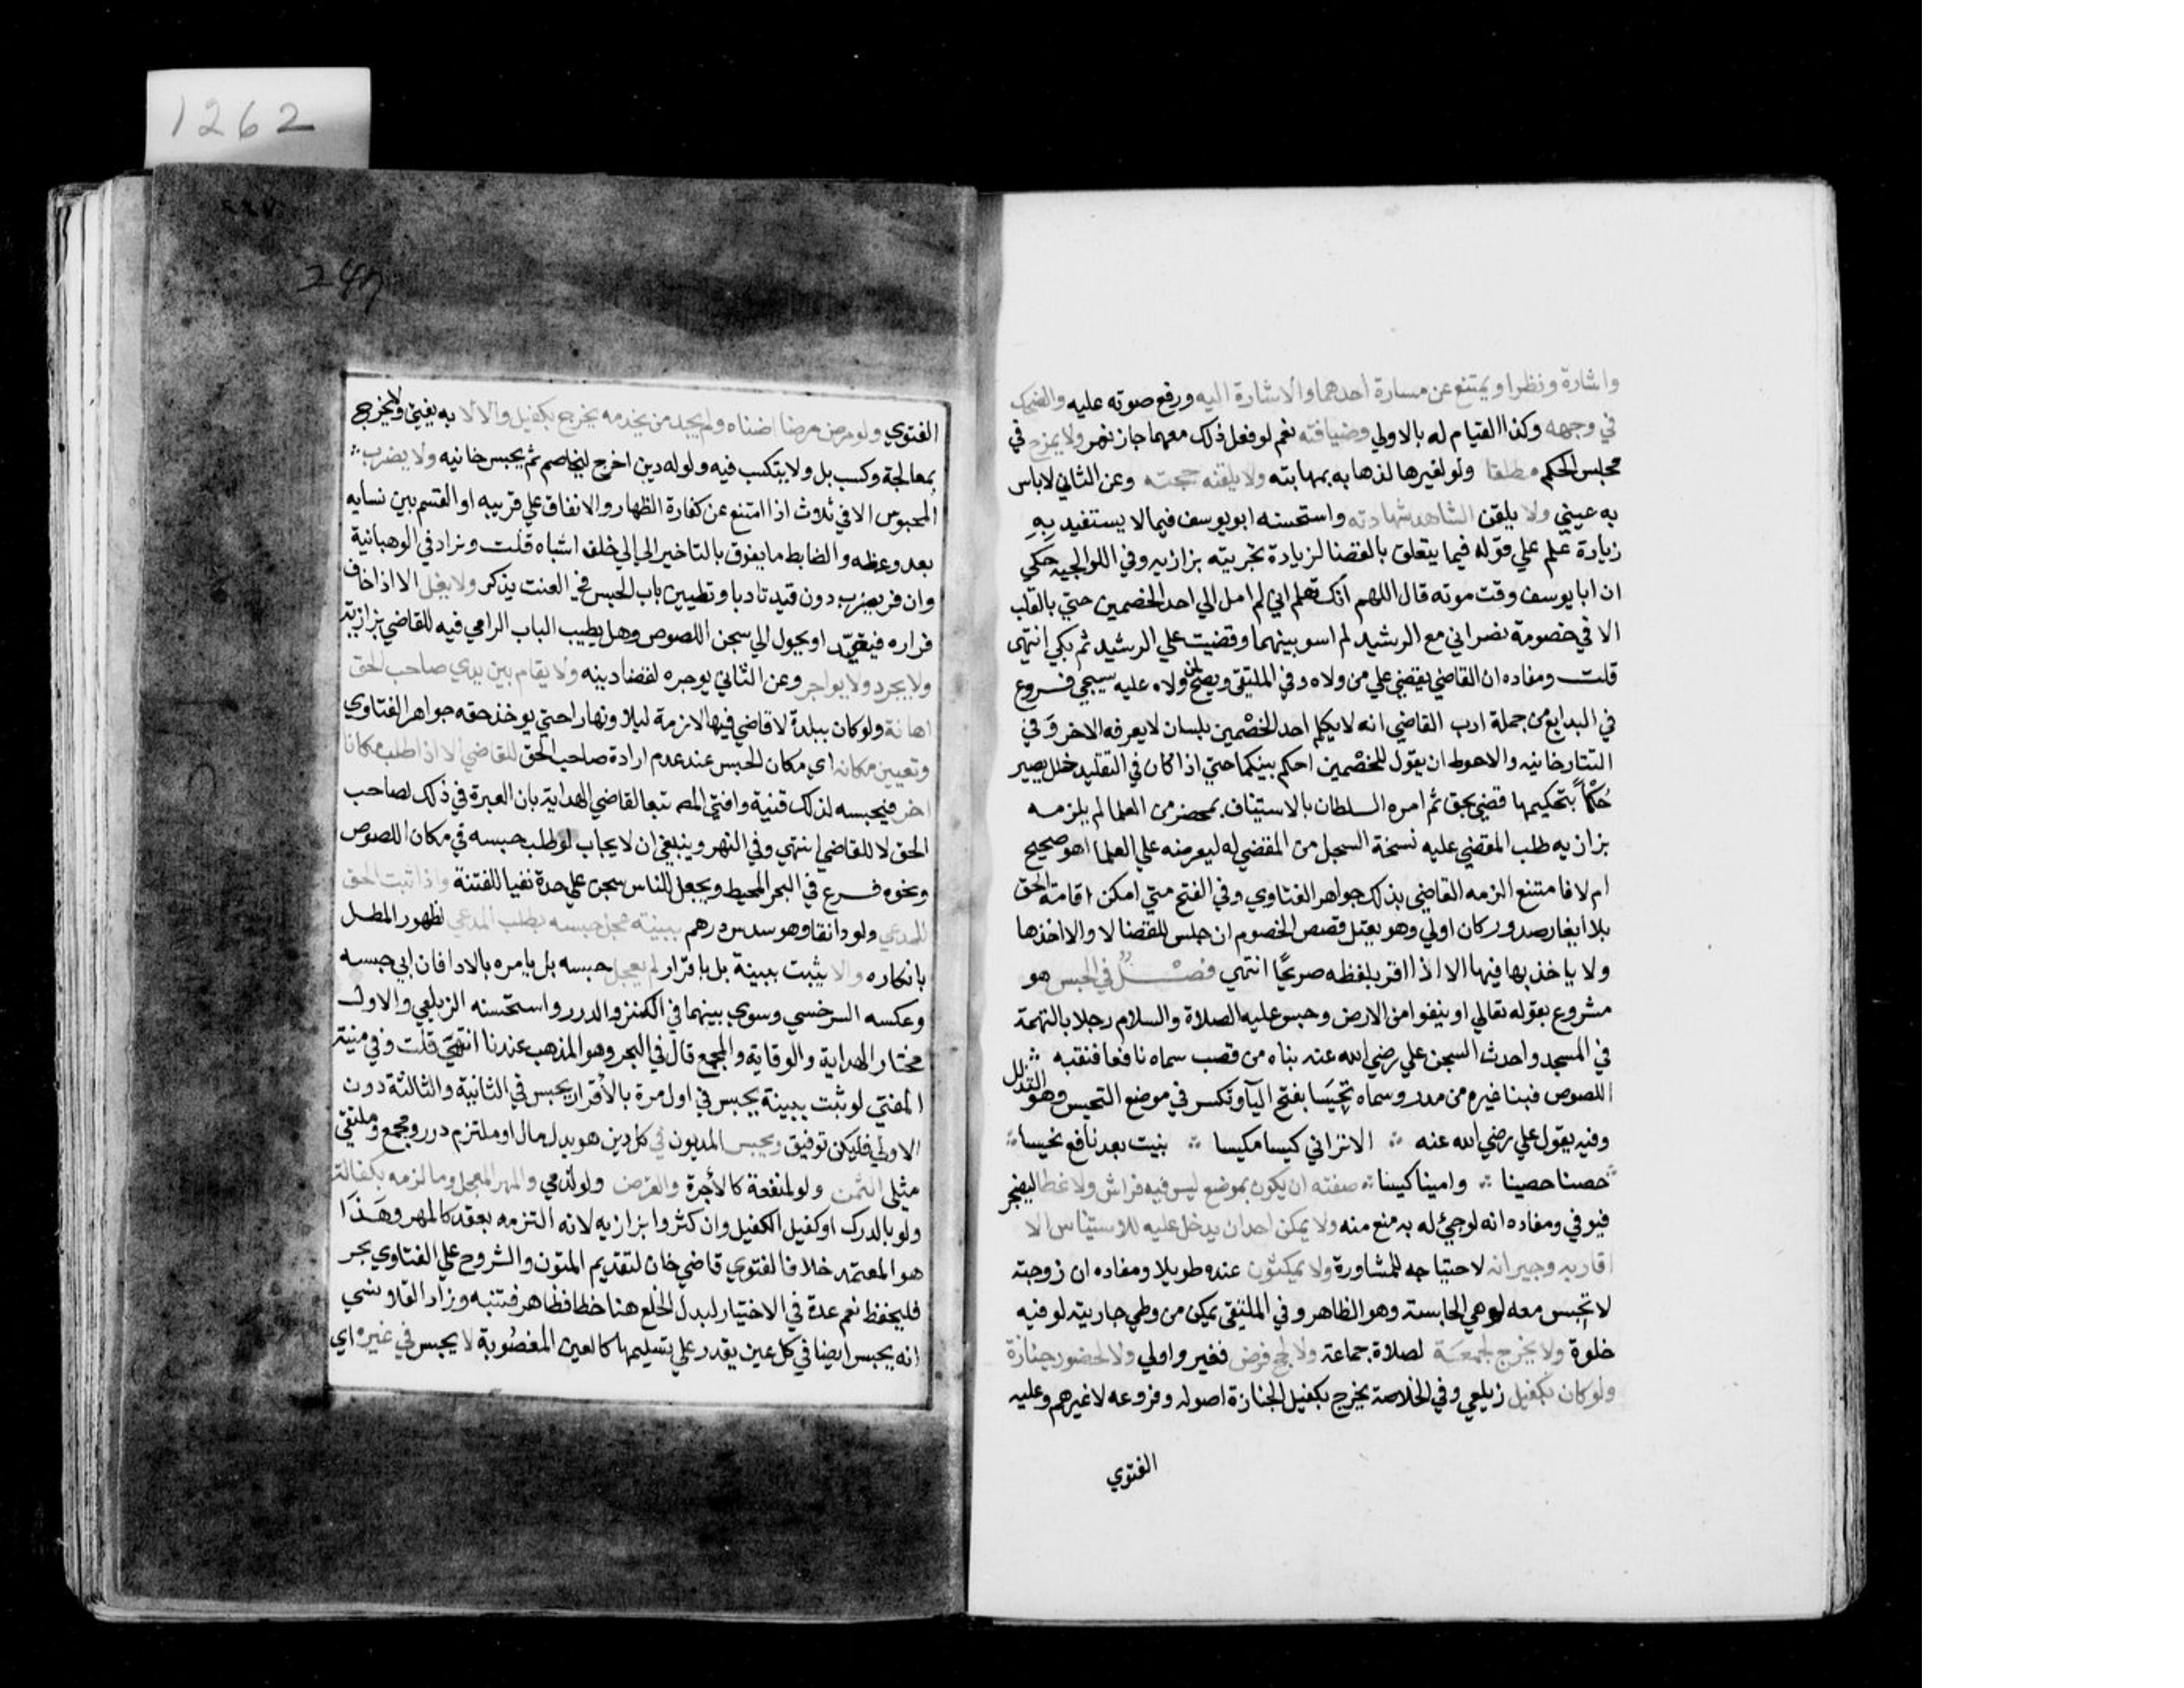 واشارة ونظرا ويمتنع عن مسارة احدهما والاشارة اليه ورفع صوته عليه والضحك
في وجهه وكذا القيام له بالاولي وضيافته نعم لو فعل ذلك معهما جاز نهر ولا يمزح في
مجلس الحكم مطلقا ولو لغيرها لذهابه بمهابته ولا يلقنه حجته وعن الثاني لاباس
به عيني ولا يلقن الشاهد شهادته واستحسنه ابو يوسف فيما لا يستفيد به
زيادة علم علي قوله فيما يتعلق بالقضا لزيادة تجربته بزازيه وفي الولوالجيه حكي
ان ابا يوسف وقت موته قال اللهم انك تعلم اني لم امل الي احد الخصمين حتي بالقلب
الا في خصومة نصراني مع الرشيد لم اسو بينهما وقضيت علي الرشيد ثم بكي انتهي
قلت ومفاده ان القاضي يقضي علي من ولاه وفي الملتقي ويصح لمن ولاه عليه سيجي فروع
في البدايع من جملة ادب القاضي انه لا يكلم احد الخصمين بلسان لا يعرفه الاخر وفي
التتارخانيه والاحوط ان يقول للخصمين احكم بينكما حتي اذا كان في التقليد خلل يصير
حُكْمًا بتحكيمهما قضي بحق ثم امره السلطان بالاستيناف بمحضر من العلما لم يلزمه
بزازيه طلب المقضي عليه نسخة السجل من المقضي له ليعرضه علي العلما اهو صحيح
ام لا فامتنع الزمه القاضي بذلك جواهر الفتاوي وفي الفتح متي امكن اقامة الحق
بلا ايغار صدور كان اولي وهو يقبل قصص الخصوم ان جلس للقضا لا والا اخذها
ولا ياخذ بها فيها الا اذا اقر بلفظه صريحًا انتهي فصل في الحبس هو
مشروع بقوله تعالي او ينفوا من الارض وحبس عليه الصلاة والسلام رجلا بالتهمة
في المسجد واحدث السجن علي رضي الله عنه بناه من قصب سماه نافعا فنقبه
اللصوص فبنا غيره من مدر وسماه تخيسا بفتح اليا وتكسر في موضع التخيس وهو التذلل
وفيه يقول علي رضي الله عنه الا تراني كيسا مكيسا بنيت بعد نافع تخيسا
حصنا حصينا وامينا كيسا صفته ان يكون بموضع ليس فيه فراش ولا غطا ليضجر
فيوفي ومفاده انه لو جيء له به منع منه ولا يمكن احد ان يدخل عليه للاستيناس الا
اقاربه وجيرانه لاحتياجه للمشاورة ولا يمكثون عنده طويلا ومفاده ان زوجته
لا تحبس معه لو هي الحابسة وهو الظاهر وفي الملتقي يمكن من وطي جاريته لو فيه
خلوة ولا يخرج لجمعة لصلاة جماعة ولا لحج فرض فغير واولي ولا لحضور جنازة
ولو كان بكفيل زيلعي وفي الخلاصة يخرج بكفيل لجنازة اصوله وفروعه لا غيرهم وعليه
الفتوي
1262
الفتوي ولو مرض مرضا اضناه ولم يجد من يخدمه يخرج بكفيل والا لا به يفتي ولا يخرج
بمعالجة وكسب بل ولا يتكسب فيه ولو له دين اخرج ليخاصم ثم يحبس خانيه ولا يضرب
المحبوس الا في ثلاث اذا امتنع عن كفارة الظهار والانفاق علي قريبه او القسم بين نسايه
بعد وعظه والضابط ما يفوت بالتاخير الي خلف اشباه قلت وزاد في الوهبانية
وان فر يضرب دون قيد تادبا وتطيين باب الحبس في العنت يذكر ولا يغل الا اذا خاف
فراره فيقيّد او يحول الي سجن اللصوص وهل يطيب الباب الراي فيه للقاضي بزازيه
ولا يجرد ولا يواجر وعن الثاني يوجره لقضا دينه ولا يقام بين يدي صاحب الحق
اهانة ولو كان ببلدة لا قاضي فيها لازمه ليلا ونهارا حتي يوخذ حقه جواهر الفتاوي
وتعيين مكانه اي مكان الحبس عند عدم ارادة صاحب الحق للقاضي الا اذا طلب مكانا
اخر فيحبسه لذلك قنية وافتي المص تبعا لقاضي الهداية بان العبرة في ذلك لصاحب
الحق لا للقاضي انتهي وفي النهر وينبغي ان لا يجاب لو طلب حبسه في مكان اللصوص
ونحوه فرع في البحر المحيط ويجعل للناس سجن علي حدة نفيا للفتنة واذا ثبت الحق
للمدعي ولو دانقا وهو سدس درهم ببينة عجل حبسه بطلب المدعي لظهور المطل
بانكاره والا يثبت ببينة بل باقرار لم يعجل حبسه بل يامره بالادا فان ابي حبسه
وعكسه السرخسي وسوي بينهما في الكنز والدرر واستحسنه الزيلعي والاول
مختار الهداية والوقاية والمجمع قال في البحر وهو المذهب عندنا انتهي قلت وفي منية
المفتي لو ثبت ببينة يحبس في اول مرة بالاقرار يحبس في الثانية والثالثة دون
الاولي فليكن توفيق ويحبس المديون في كل دين هو بدل مال او ملتزم درر ومجمع وملتقي
مثلي الثمن ولو لمنفعة كالأجرة والقرض ولو لذمي والمهر المعجل وما لزمه بكفالة
ولو بالدرك او كفيل الكفيل وان كثروا بزازيه لانه التزمه بعقد كالمهر وهذا
هو المعتمد خلافا لفتوي قاضي خان لتقديم المتون والشروح علي الفتاوي بحر
فليحفظ نعم عدة في الاختيار لبدل الخلع هنا خطا فظاهر فتنبه وزاد القلانسي
انه يحبس ايضا في كل عين يقدر علي تسليمها كالعين المغصوبة لا يحبس في غيره اي